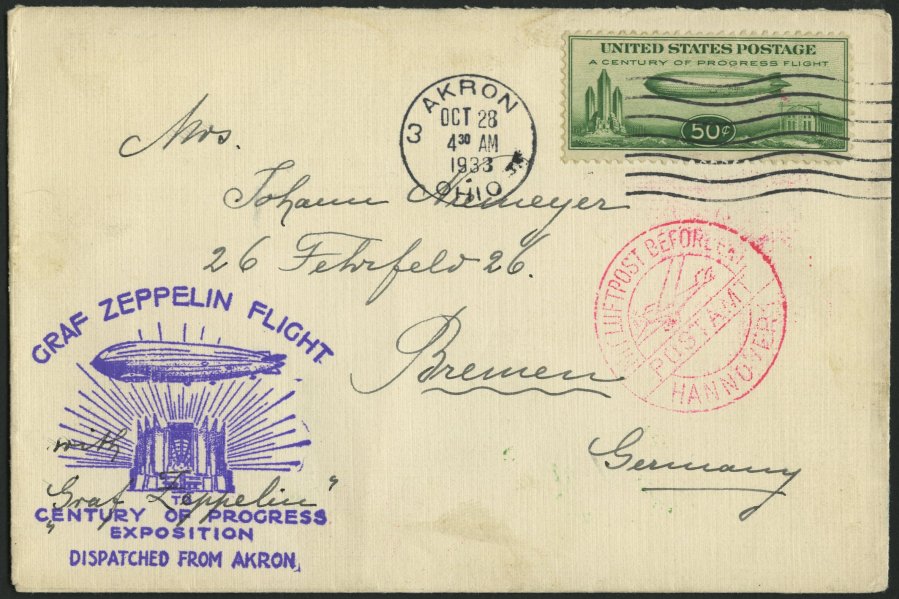 UNITED STATES POSTAGE
A CENTURY OF PROGRESS FLIGHT
50¢
AKRON
3
OCT 28
4 30 AM
1933
OHIO
Mrs.
Johann Niemeyer
26 Fehrfeld 26.
Bremen
Germany
LUFTPOST BEFÖRDERT
POSTAMT
HANNOVER
GRAF ZEPPELIN FLIGHT
with
"Graf Zeppelin"
TO
CENTURY OF PROGRESS
EXPOSITION
DISPATCHED FROM AKRON